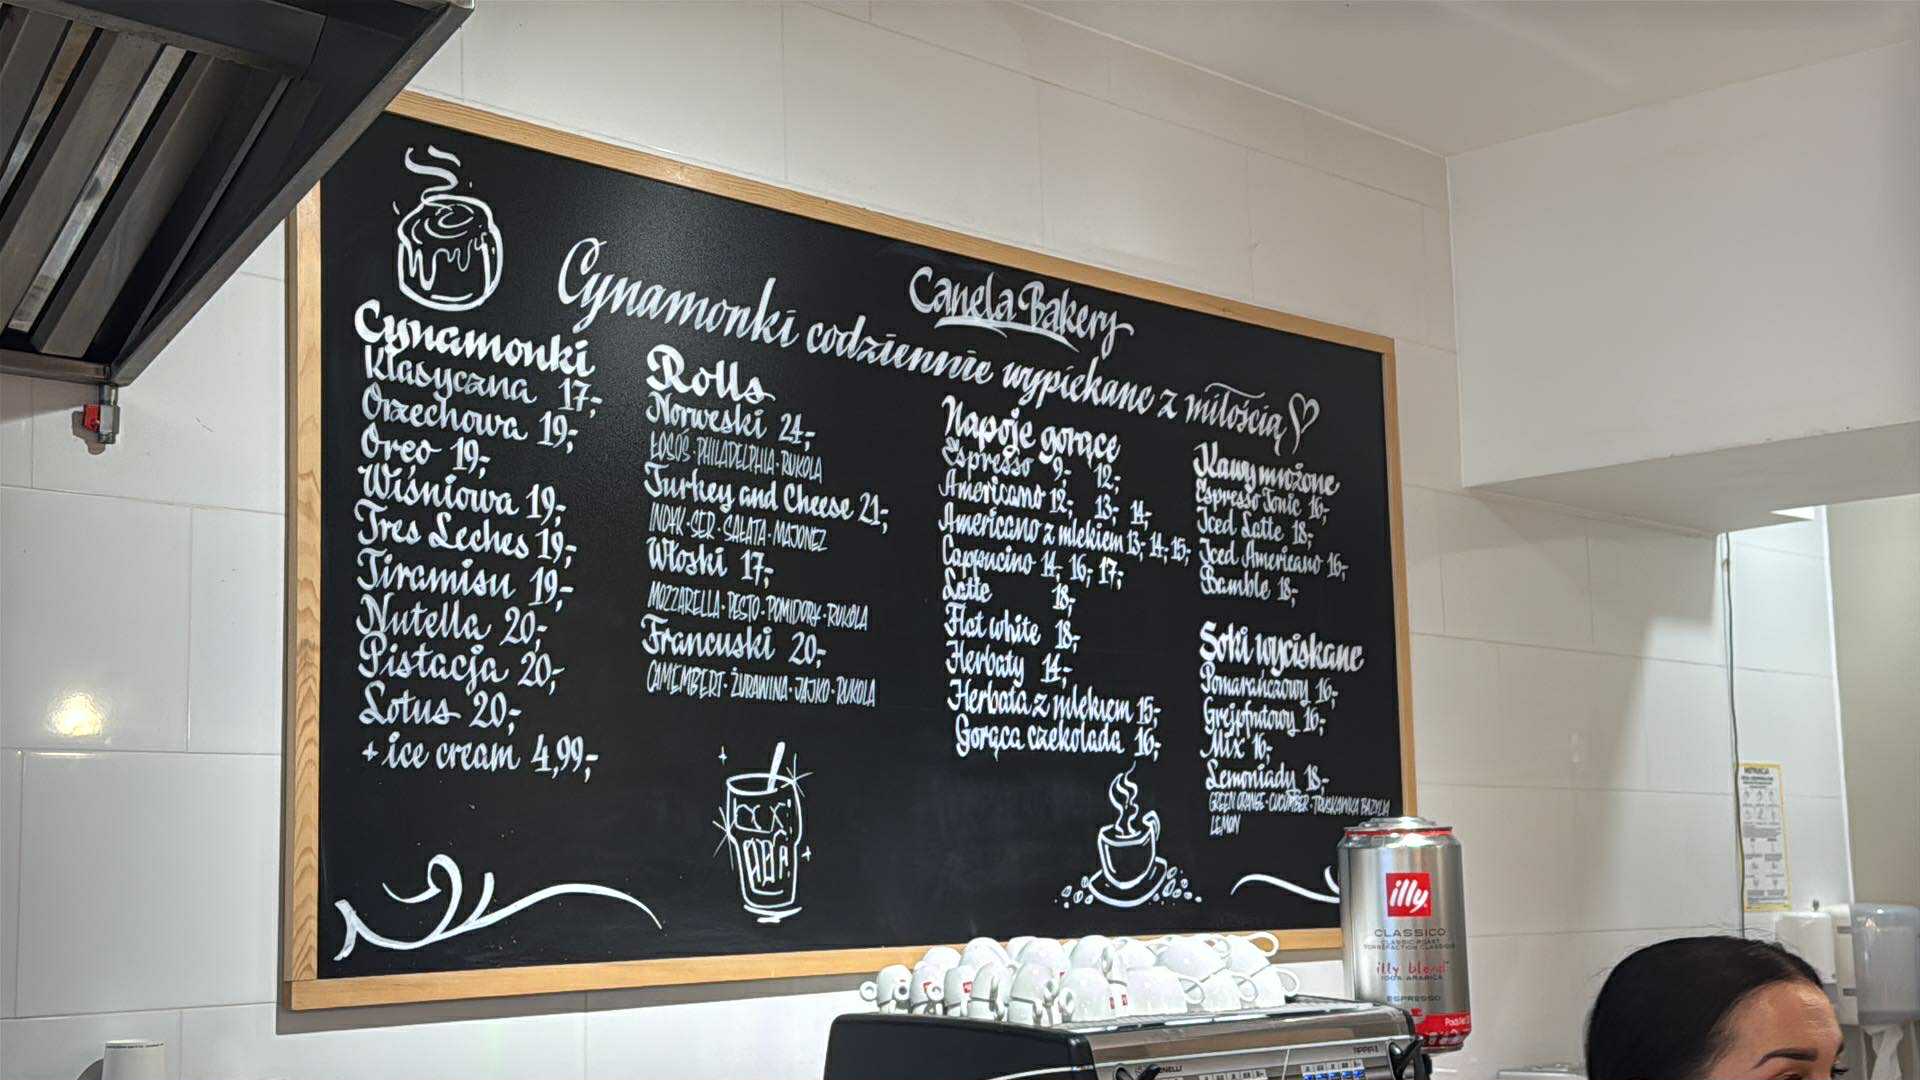 Canela Bakery
Cynamonki codziennie wypiekane z miłością
Cynamonki
Klasyczna 17,-
Orzechowa 19,-
Oreo 19,-
Wiśniowa 19,-
Tres Leches 19,-
Tiramisu 19,-
Nutella 20,-
Pistacja 20,-
Lotus 20,-
+ ice cream 4,99,-
Rolls
Norweski 24,-
ŁOSOŚ · PHILADELPHIA · RUKOLA
Turkey and Cheese 21,-
INDYK · SER · SAŁATA · MAJONEZ
Włoski 17,-
MOZZARELLA · PESTO · POMIDORY · RUKOLA
Francuski 20,-
CAMEMBERT · ŻURAWINA · JAJKO · RUKOLA
Napoje gorące
Espresso 9,- 12,-
Americano 12,- 13,- 14,-
Americano z mlekiem 13,- 14,- 15,-
Cappucino 14, 16,- 17,-
Latte 18,-
Flat white 18,-
Herbaty 14,-
Herbata z mlekiem 15,-
Gorąca czekolada 16,-
Kawy mrożone
Espresso Tonic 16,-
Iced Latte 18,-
Iced Americano 16,-
Bamble 18,-
Soki wyciskane
Pomarańczowy 16,-
Grejpfrutowy 16,-
Mix 16,-
Lemoniady 18,-
GREEN ORANGE · CUCUMBER · TRUSKAWKA BAZYLIA
LEMON
illy
CLASSICO
CLASSIC ROAST
illy blend
100% ARABICA
ESPRESSO
INSTRUKCJA